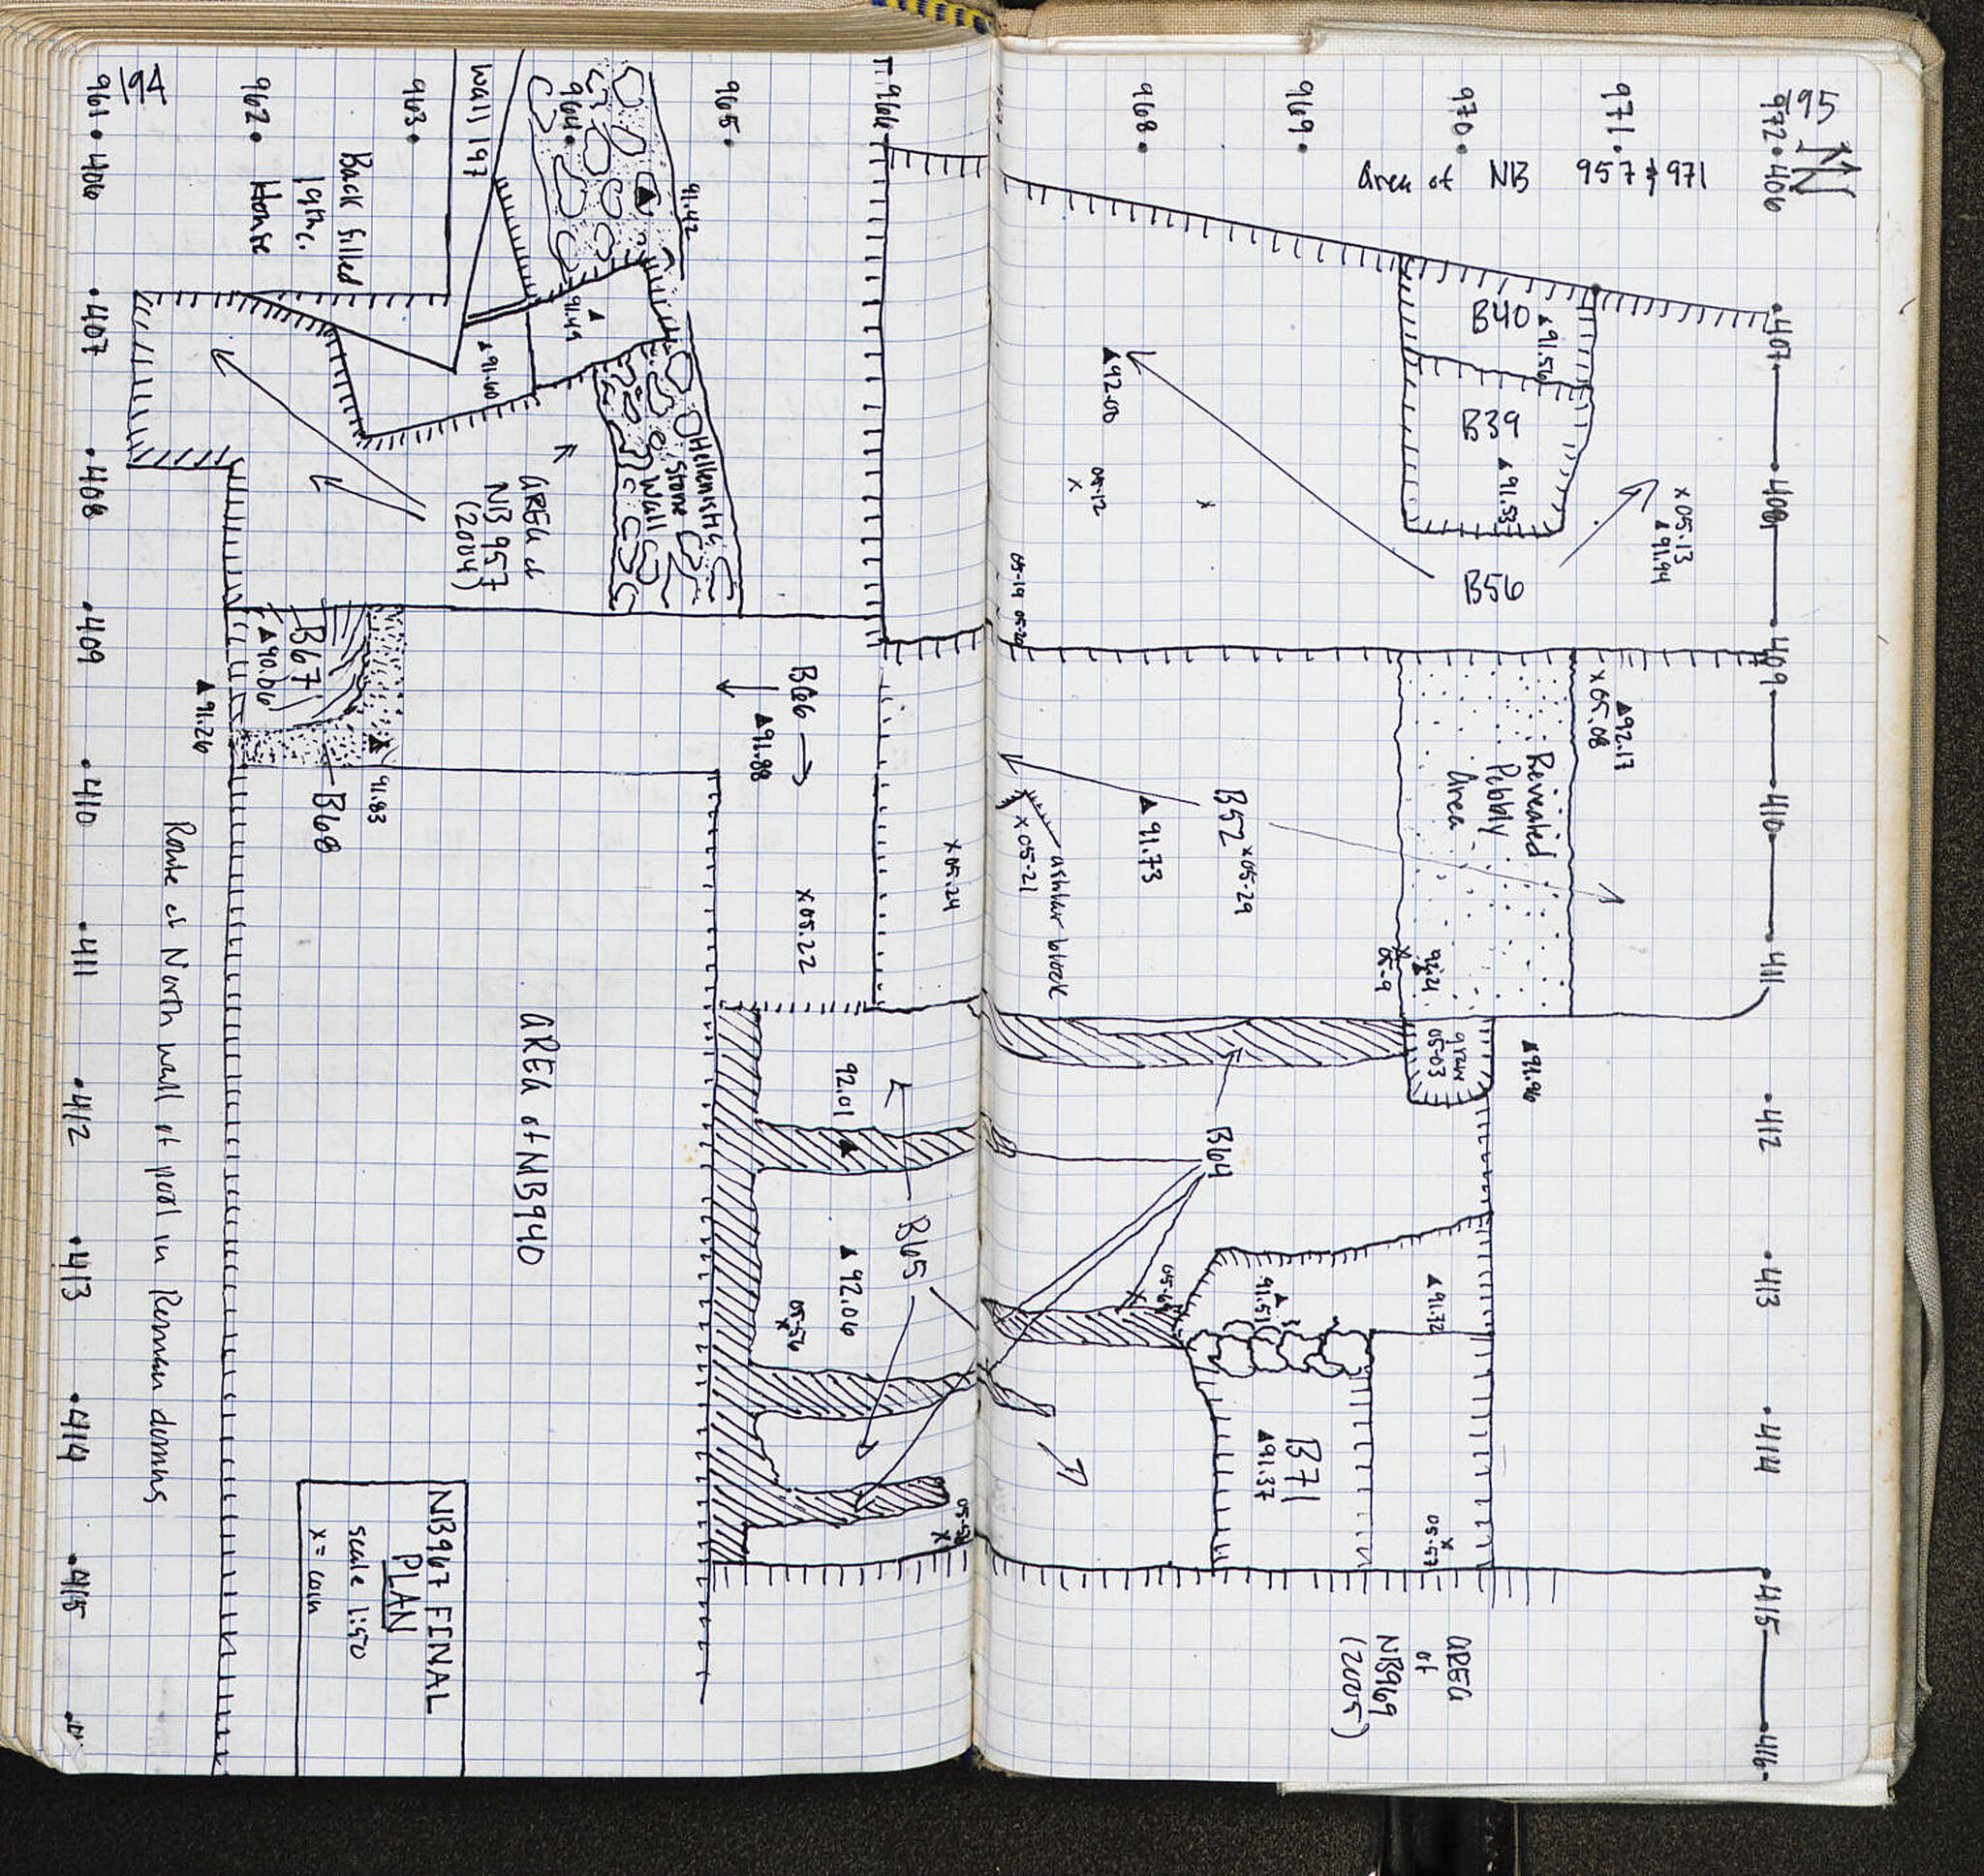 194
195
N
961 •
962 •
963 •
964 •
965 •
966
968 •
969 •
970 •
971 •
972 • 406
Area of NB 957 & 971
• 406
• 407
• 408
• 409
• 410
• 411
• 412
• 413
• 414
• 415
• 407
• 408
• 409
• 410
• 411
• 412
• 413
• 414
• 415
• 416
Wall 197
Back filled
19th c.
House
91.42
▲ 91.49
▲ 91.60
Hellenistic
Stone
Wall
AREA of
NB 957
(2004)
B67
▲ 90.06
▲ 91.26
B68
91.83
B66
▲ 91.88
x 05.22
x 05.24
Robe of North wall of pool in Roman domus
AREA of NB940
92.01
▲ 92.06
05-56
x
B65
NB967 FINAL
PLAN
scale 1:50
x = coin
B40
▲ 91.56
B39
▲ 91.53
B56
x 05.13
▲ 91.94
▲ 92.00
05-12
x
x
05-19
▲ 92.17
x 05.08
Revealed
Pebbly
Area
B52
x 05-29
▲ 91.73
x 05-21
ashlar block
92.21
05-9
05-03
▲ 91.96
B64
▲ 91.51
▲ 91.72
B71
▲ 91.37
05-57
x
AREA
of
NB969
(2005)